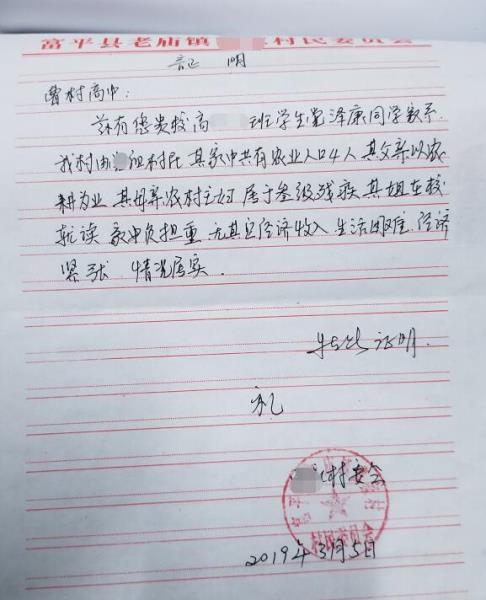 富平县老庙镇 村民委员会
证明
曹村高中:
兹有您贵校高 班学生党泽康同学数系
我村由 组村民 其家中共有农业人口4人 其父亲以农
耕为业 其母亲农村主妇 属于叁级残疾 其姐在校
就读 家中负担重 无其它经济收入 生活困难 经济
紧张 情况属实.
特此证明.
村委会
村民委员会
2019年3月5日